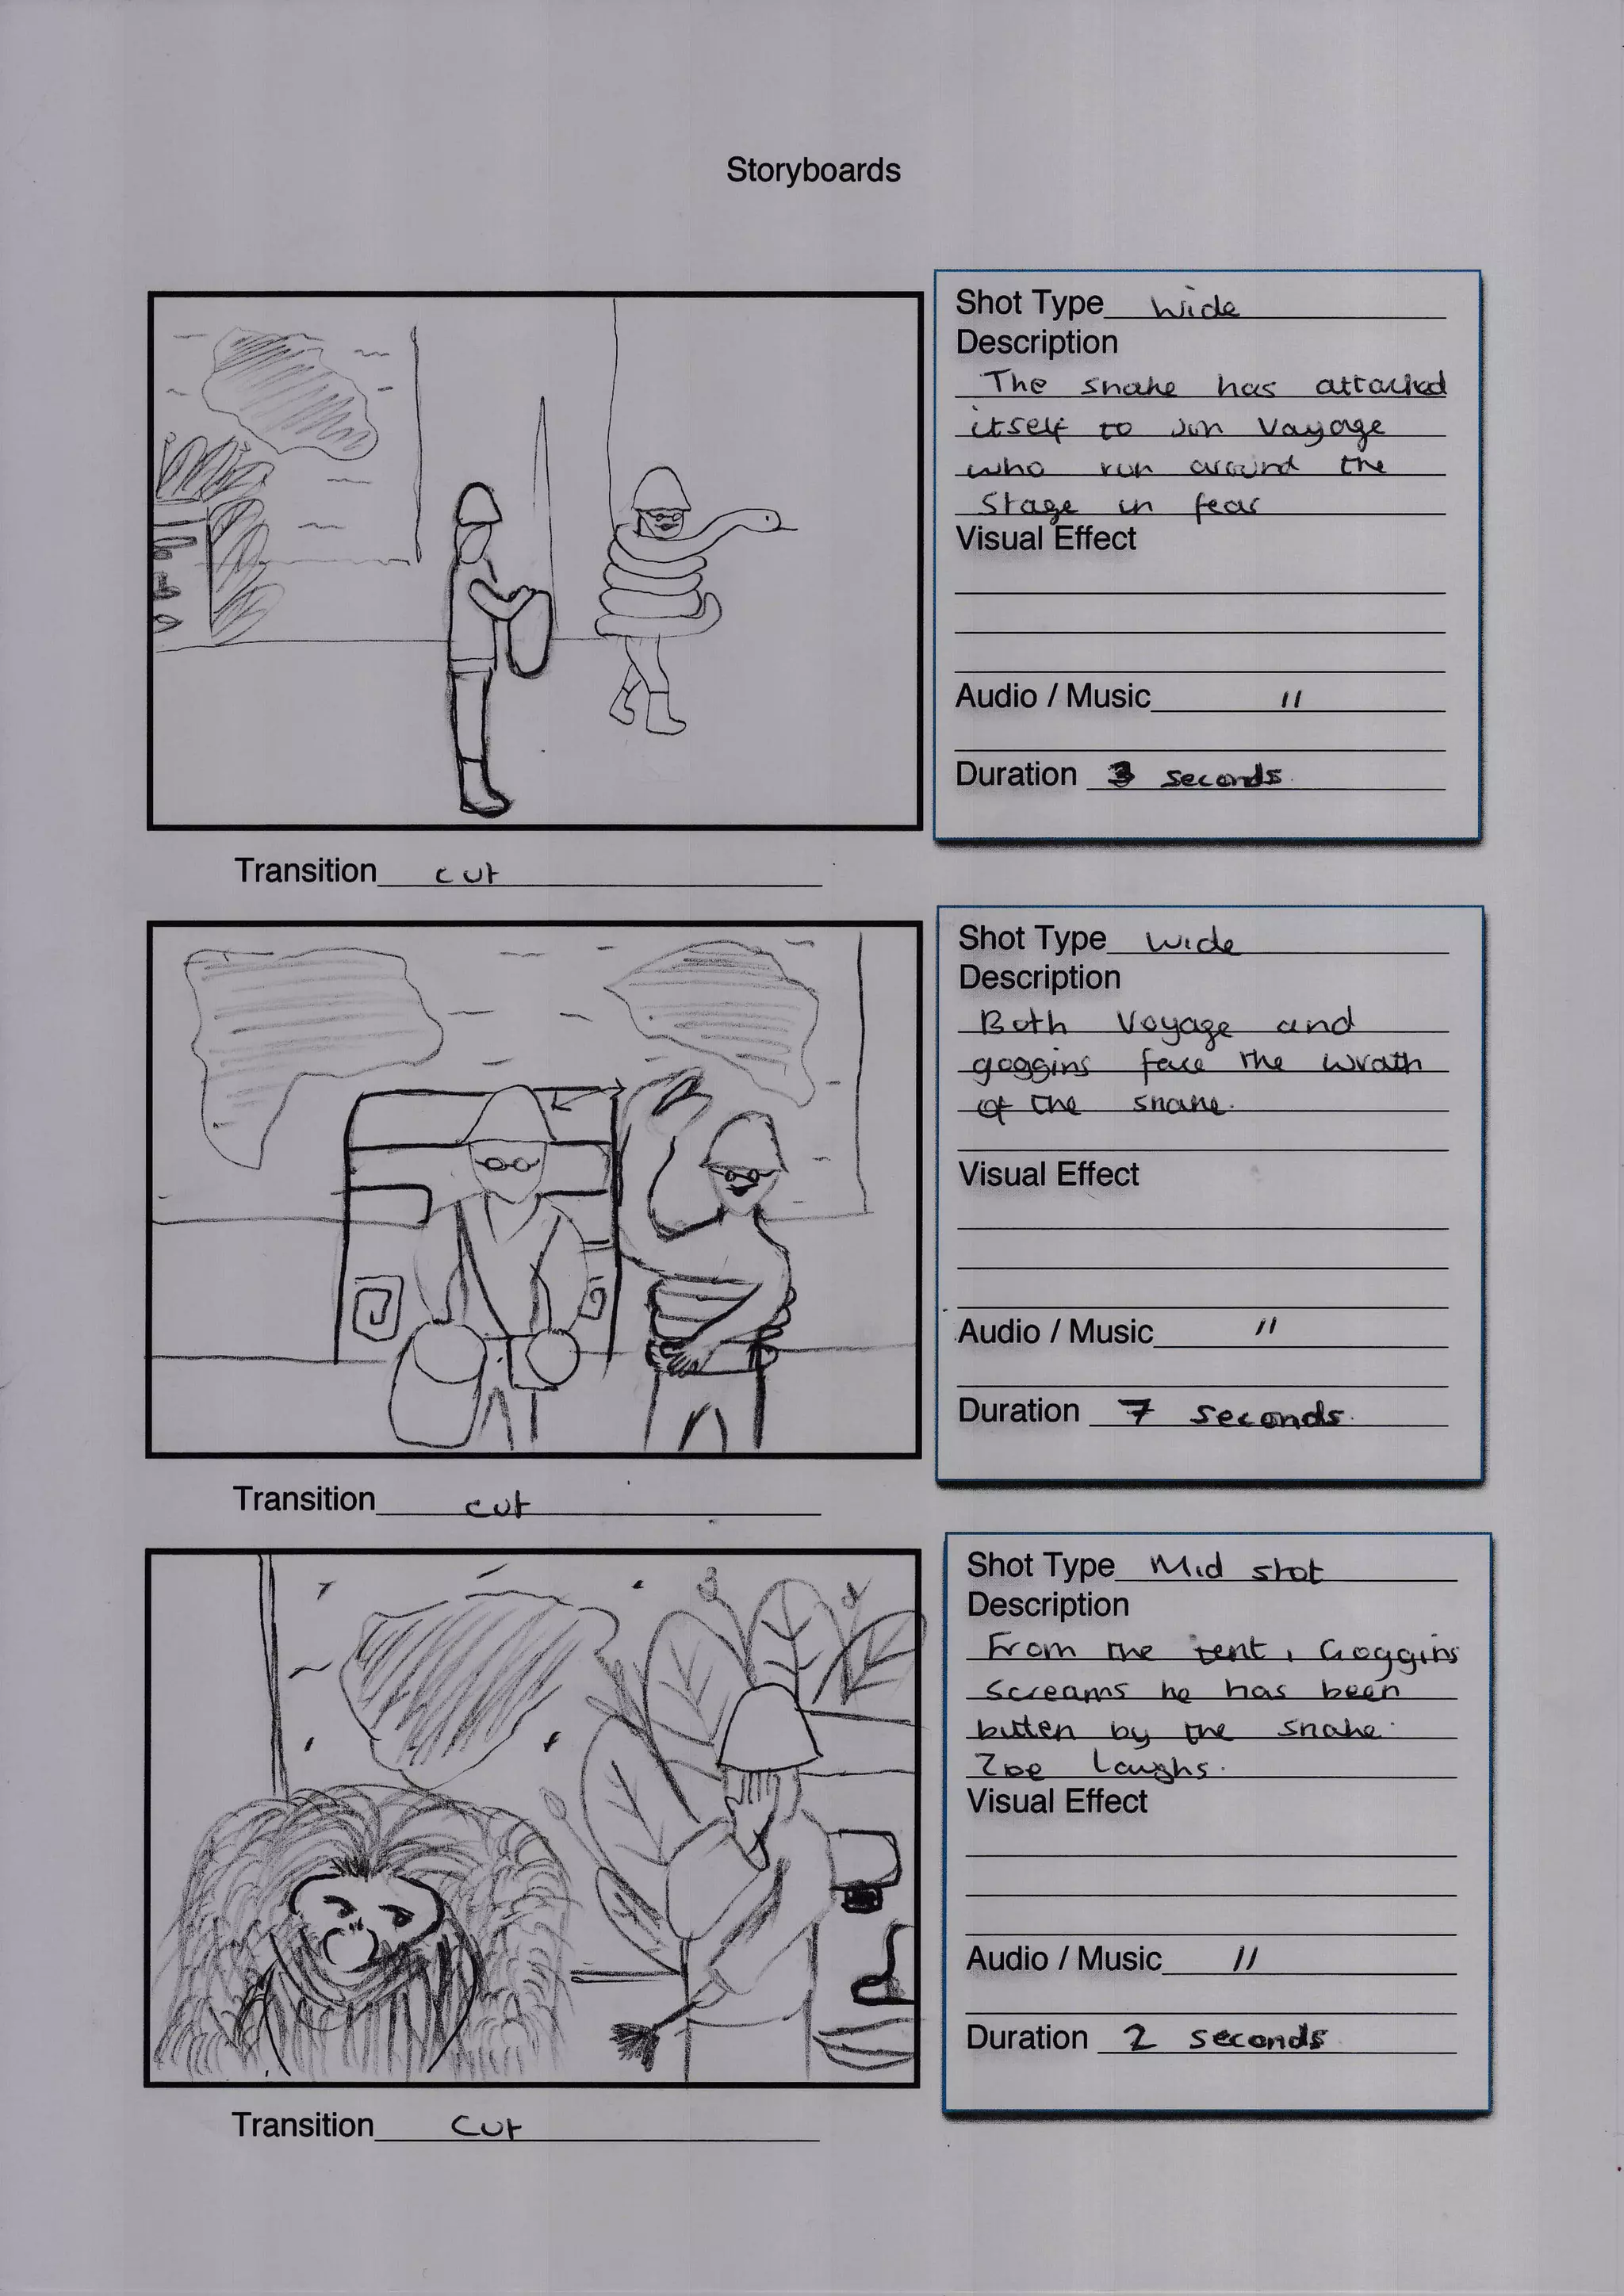 Storyboards
Shot Type Wide
Description
The snake has attached
itself to Jon Vayage
who run around the
stage in fear
Visual Effect
Audio / Music "
Duration 3 seconds.
Transition cut
Shot Type Wide
Description
Both Voyage and
goggins face the wrath
of the snake.
Visual Effect
Audio / Music "
Duration 7 seconds.
Transition cut
Shot Type Mid shot
Description
From the tent, Goggins
screams he has been
bitten by the snake.
Zoe Laughs.
Visual Effect
Audio / Music "
Duration 2 seconds.
Transition cut